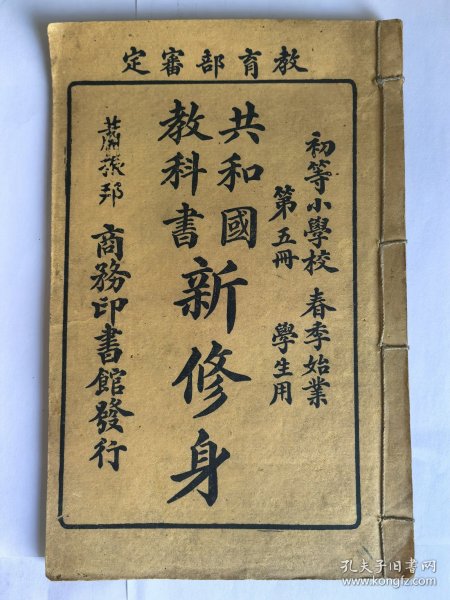 教育部審定
初等小學校 春季始業
第五冊 學生用
共和國
教科書
新修身
蕭振邦
商務印書館發行
孔夫子旧书网
www.kongfz.com